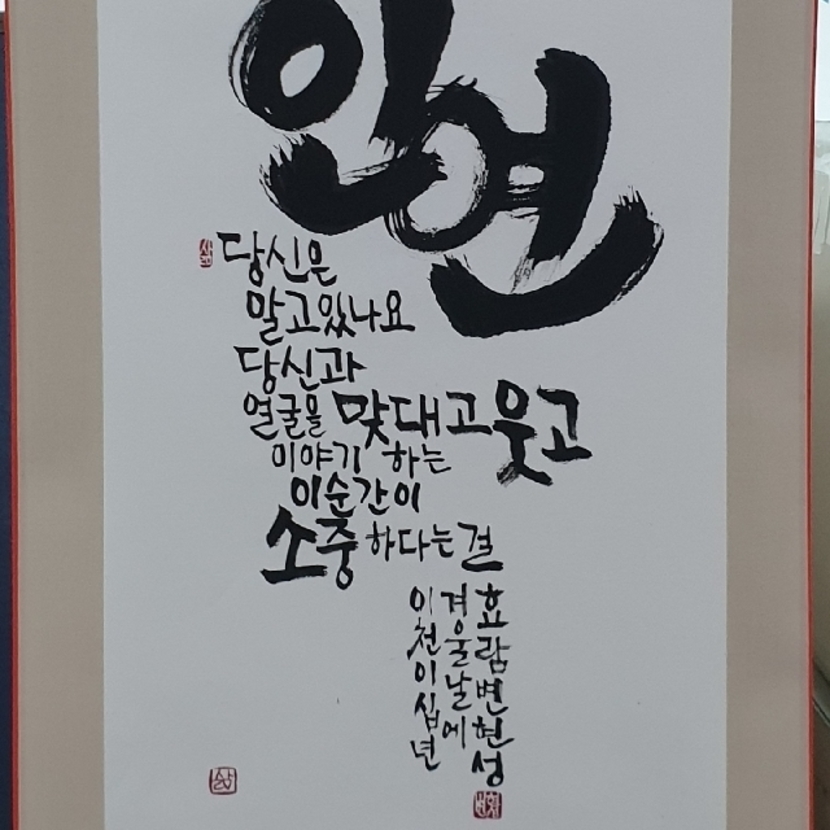 인연
당신은
알고있나요
당신과
얼굴을 맞대고웃고
이야기 하는
이순간이
소중하다는걸
이천이십년
겨울날에
효람변현성